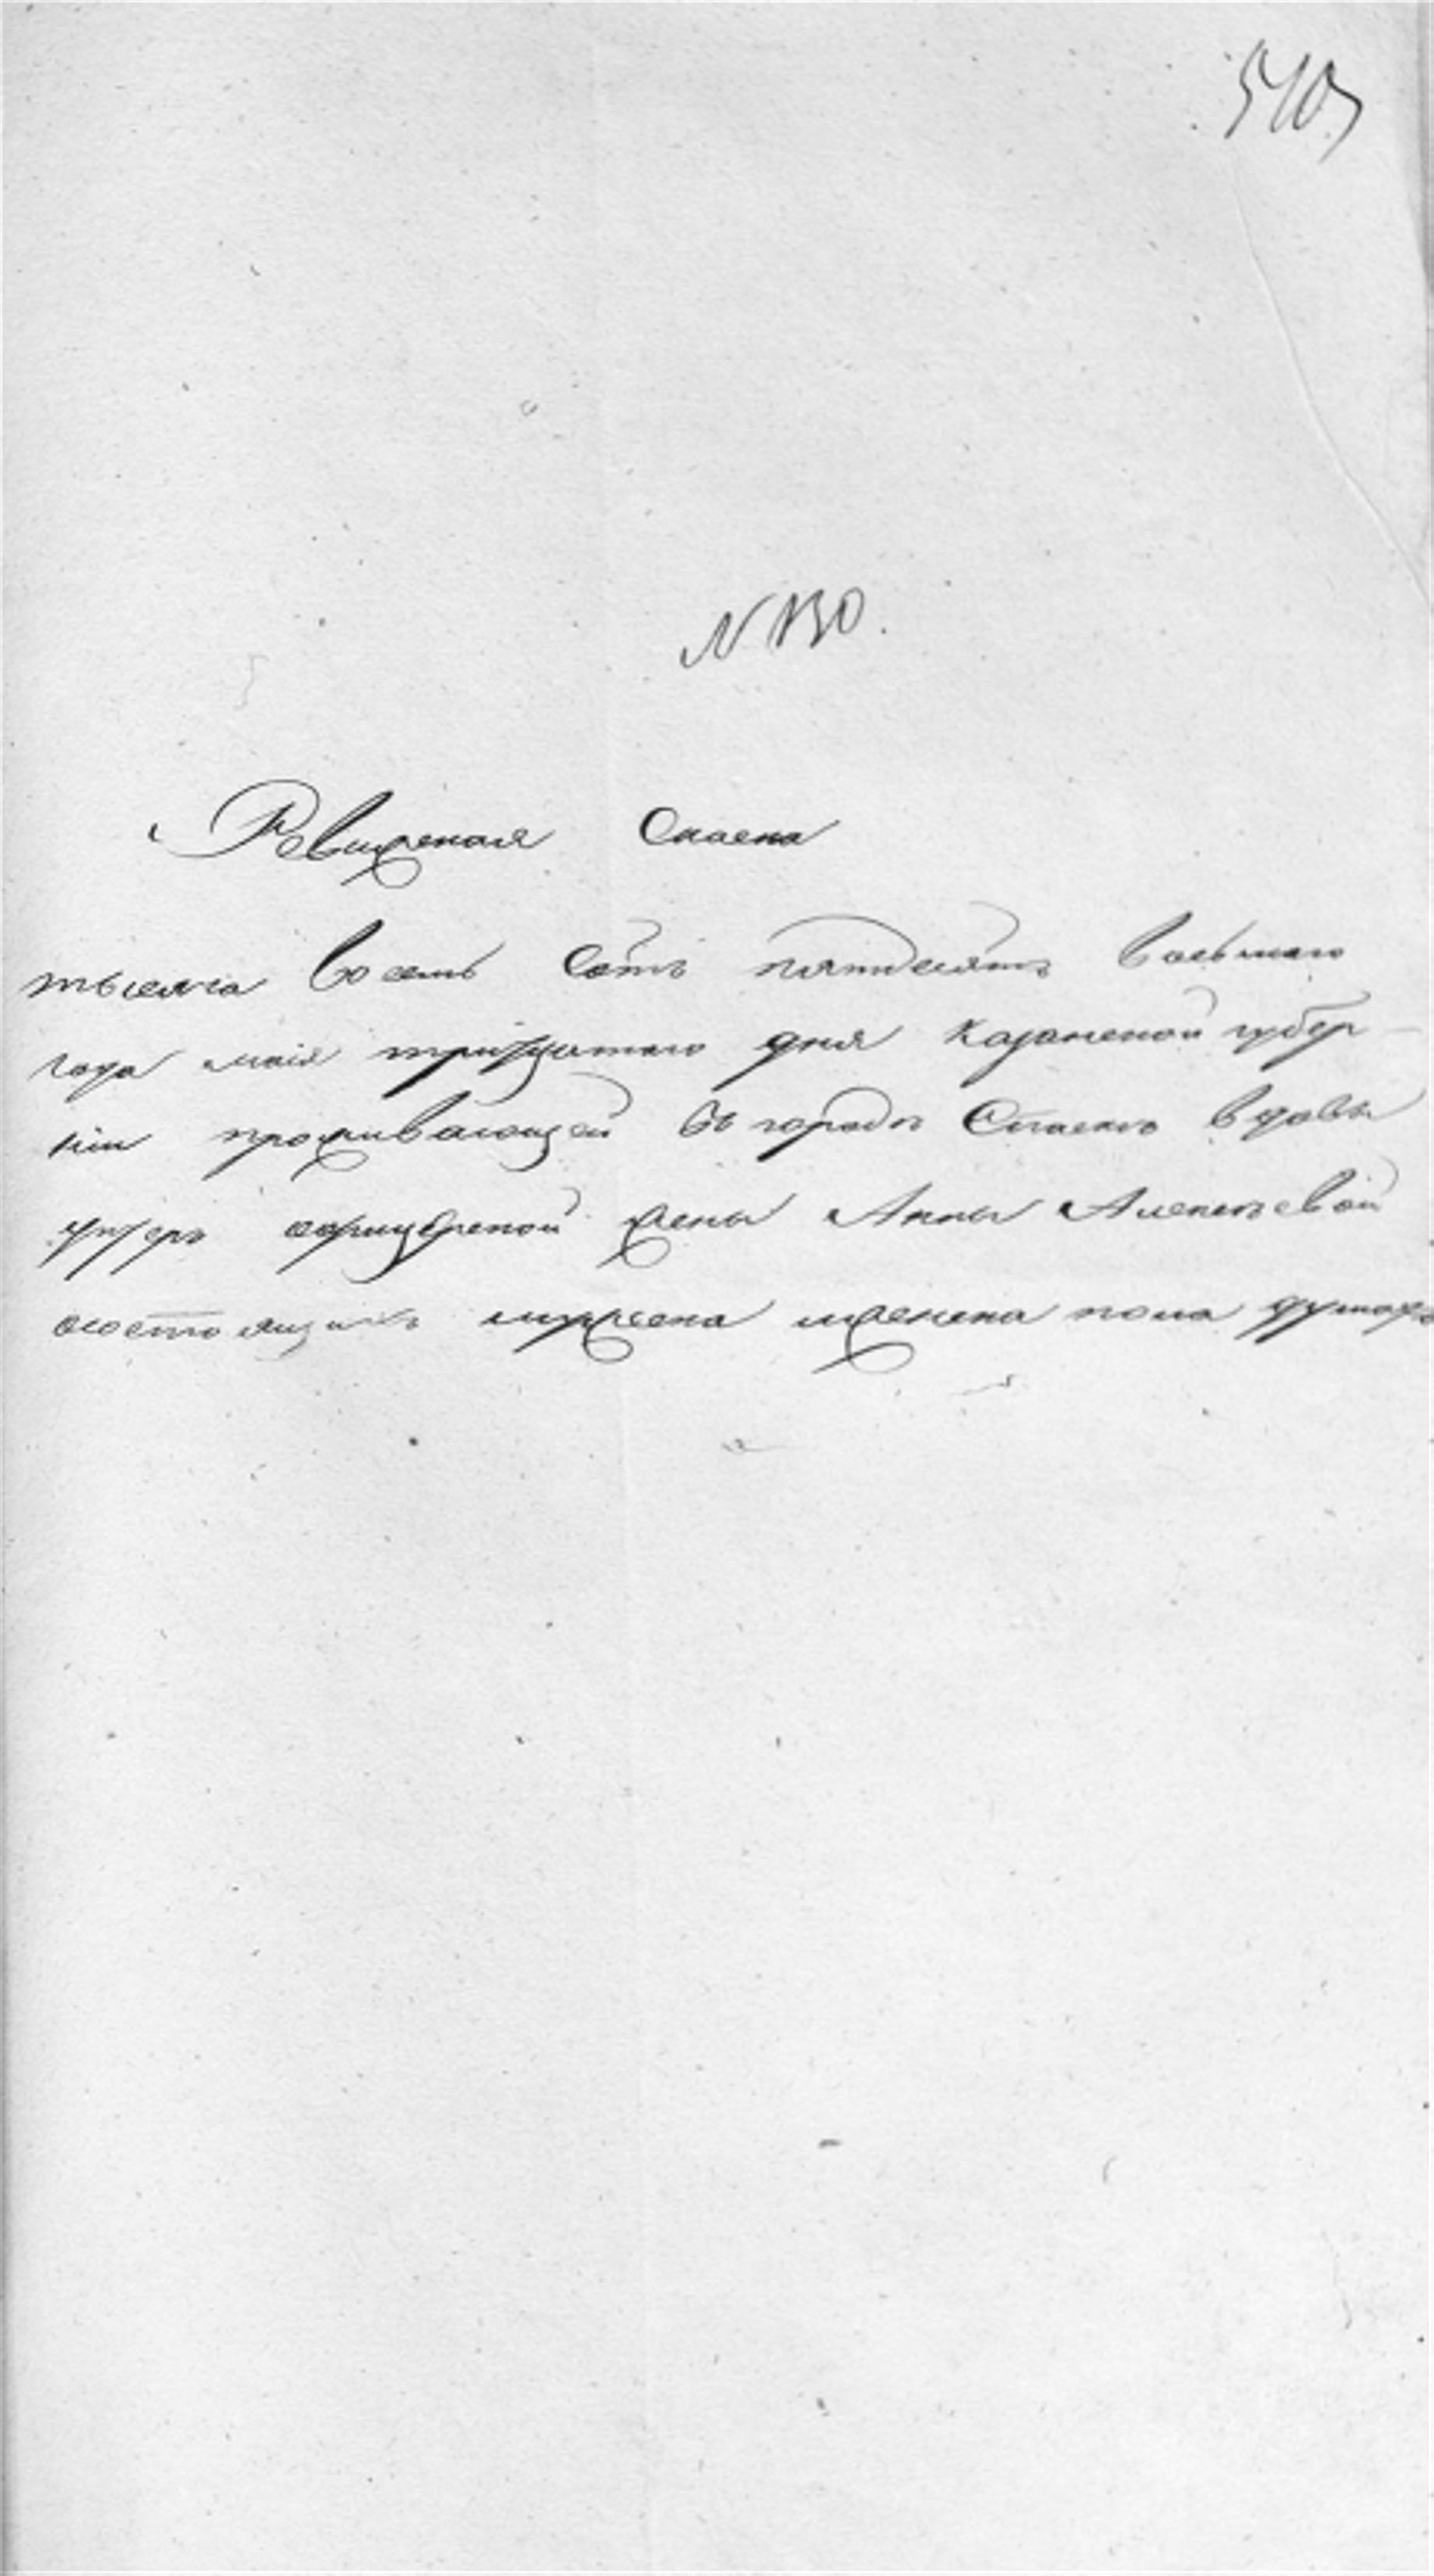 510
N 130.
Ревижская Скаска
тысяча восемь сотъ пятидесятъ восьмаго
года маія тридцатаго дня Казанской губер-
ніи проживающей въ городѣ Спаскѣ вдовы
унтеръ офицерской жены Анны Алексѣевой
о состоящихъ мужеска и женска пола душахъ